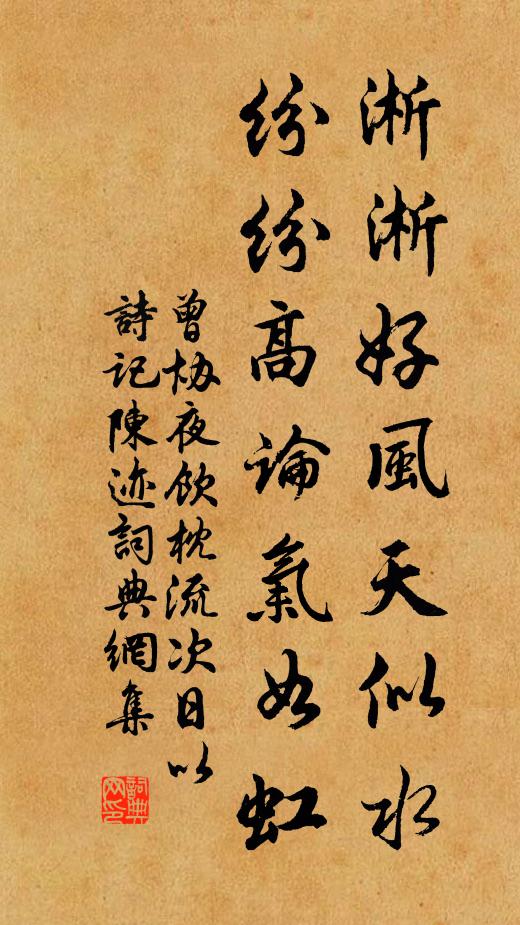 淅淅好風天似水
紛紛高論氣如虹
曾協夜飲枕流次日以
詩記陳迹詞典網集
詞典
网印